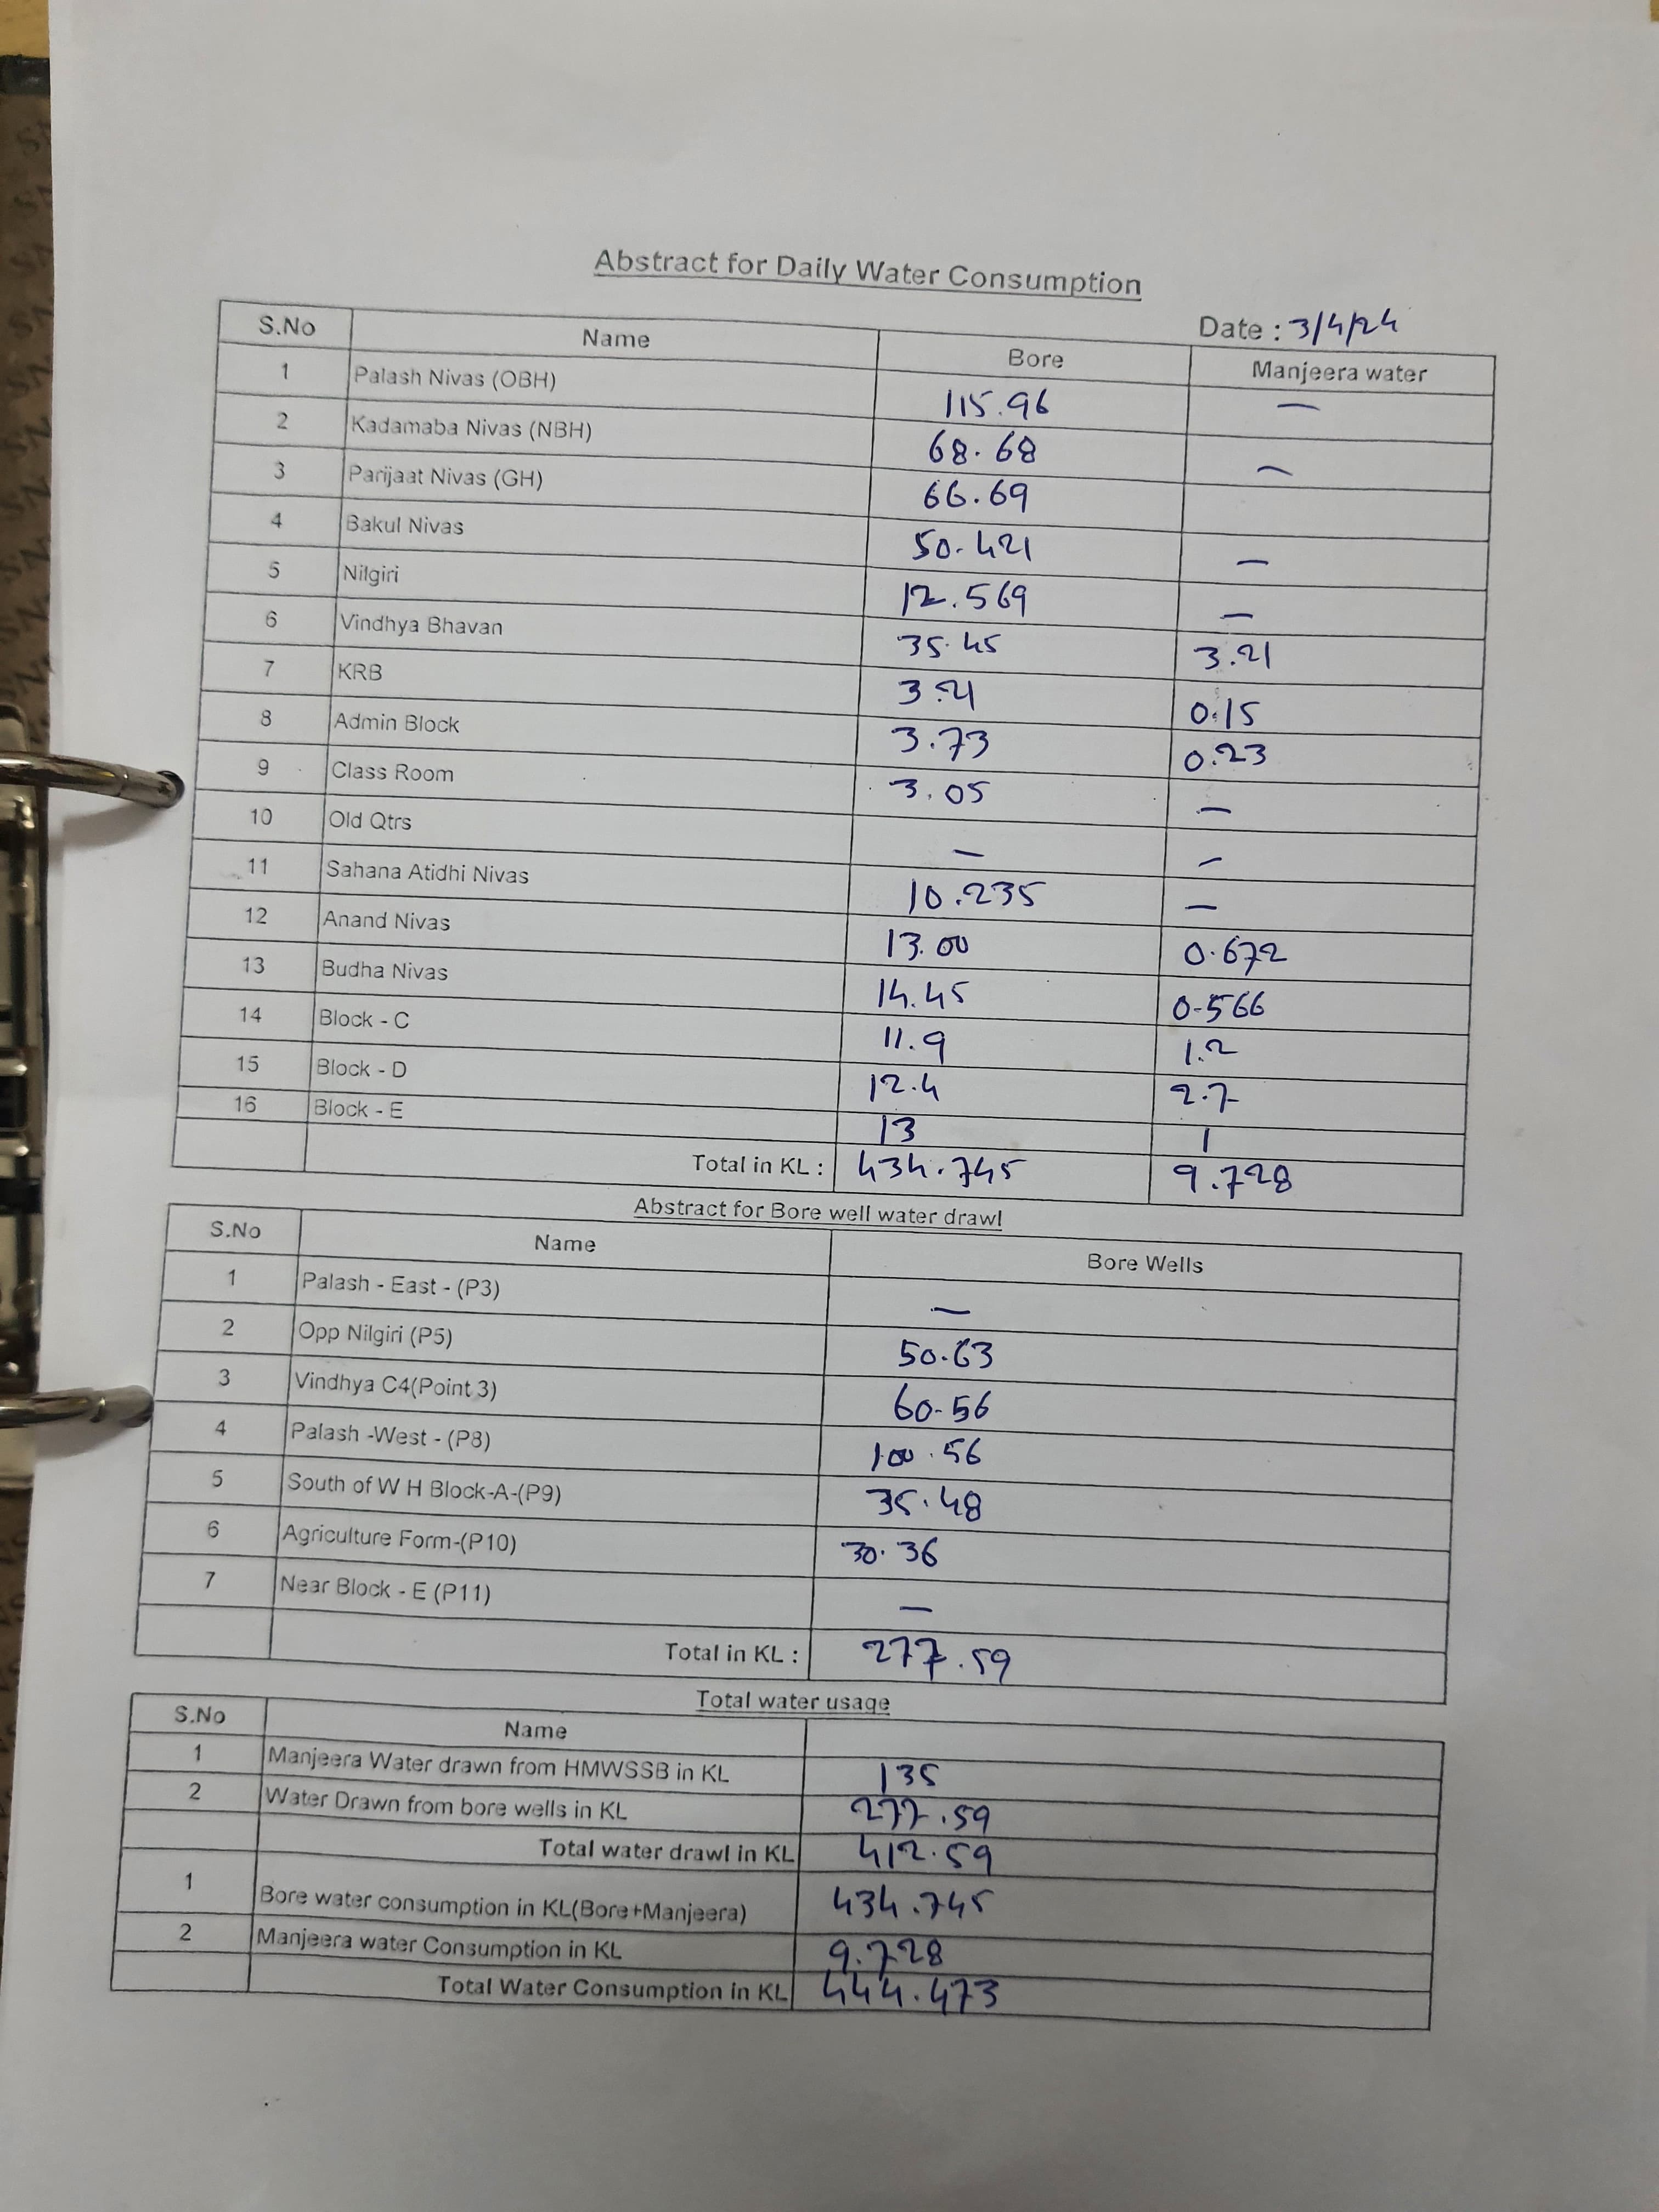 Abstract for Daily Water Consumption
Date : 3/4/24
S.No Name Bore Manjeera water
1 Palash Nivas (OBH) 115.96 —
2 Kadamaba Nivas (NBH) 68.68 —
3 Parijaat Nivas (GH) 66.69
4 Bakul Nivas 50.421 —
5 Nilgiri 12.569 —
6 Vindhya Bhavan 35.45 3.21
7 KRB 3.21 0.15
8 Admin Block 3.73 0.23
9 Class Room 3.05 —
10 Old Qtrs — —
11 Sahana Atidhi Nivas 10.235 —
12 Anand Nivas 13.00 0.672
13 Budha Nivas 14.45 0.566
14 Block - C 11.9 1.2
15 Block - D 12.4 2.7
16 Block - E 13 1
Total in KL : 434.745 9.728
Abstract for Bore well water drawl
S.No Name Bore Wells
1 Palash - East - (P3) —
2 Opp Nilgiri (P5) 50.63
3 Vindhya C4(Point 3) 60.56
4 Palash -West - (P8) 100.56
5 South of W H Block-A-(P9) 35.48
6 Agriculture Form-(P10) 30.36
7 Near Block - E (P11) —
Total in KL : 277.59
Total water usage
S.No Name
1 Manjeera Water drawn from HMWSSB in KL 135
2 Water Drawn from bore wells in KL 277.59
Total water drawl in KL 412.59
1 Bore water consumption in KL(Bore+Manjeera) 434.745
2 Manjeera water Consumption in KL 9.728
Total Water Consumption in KL 444.473